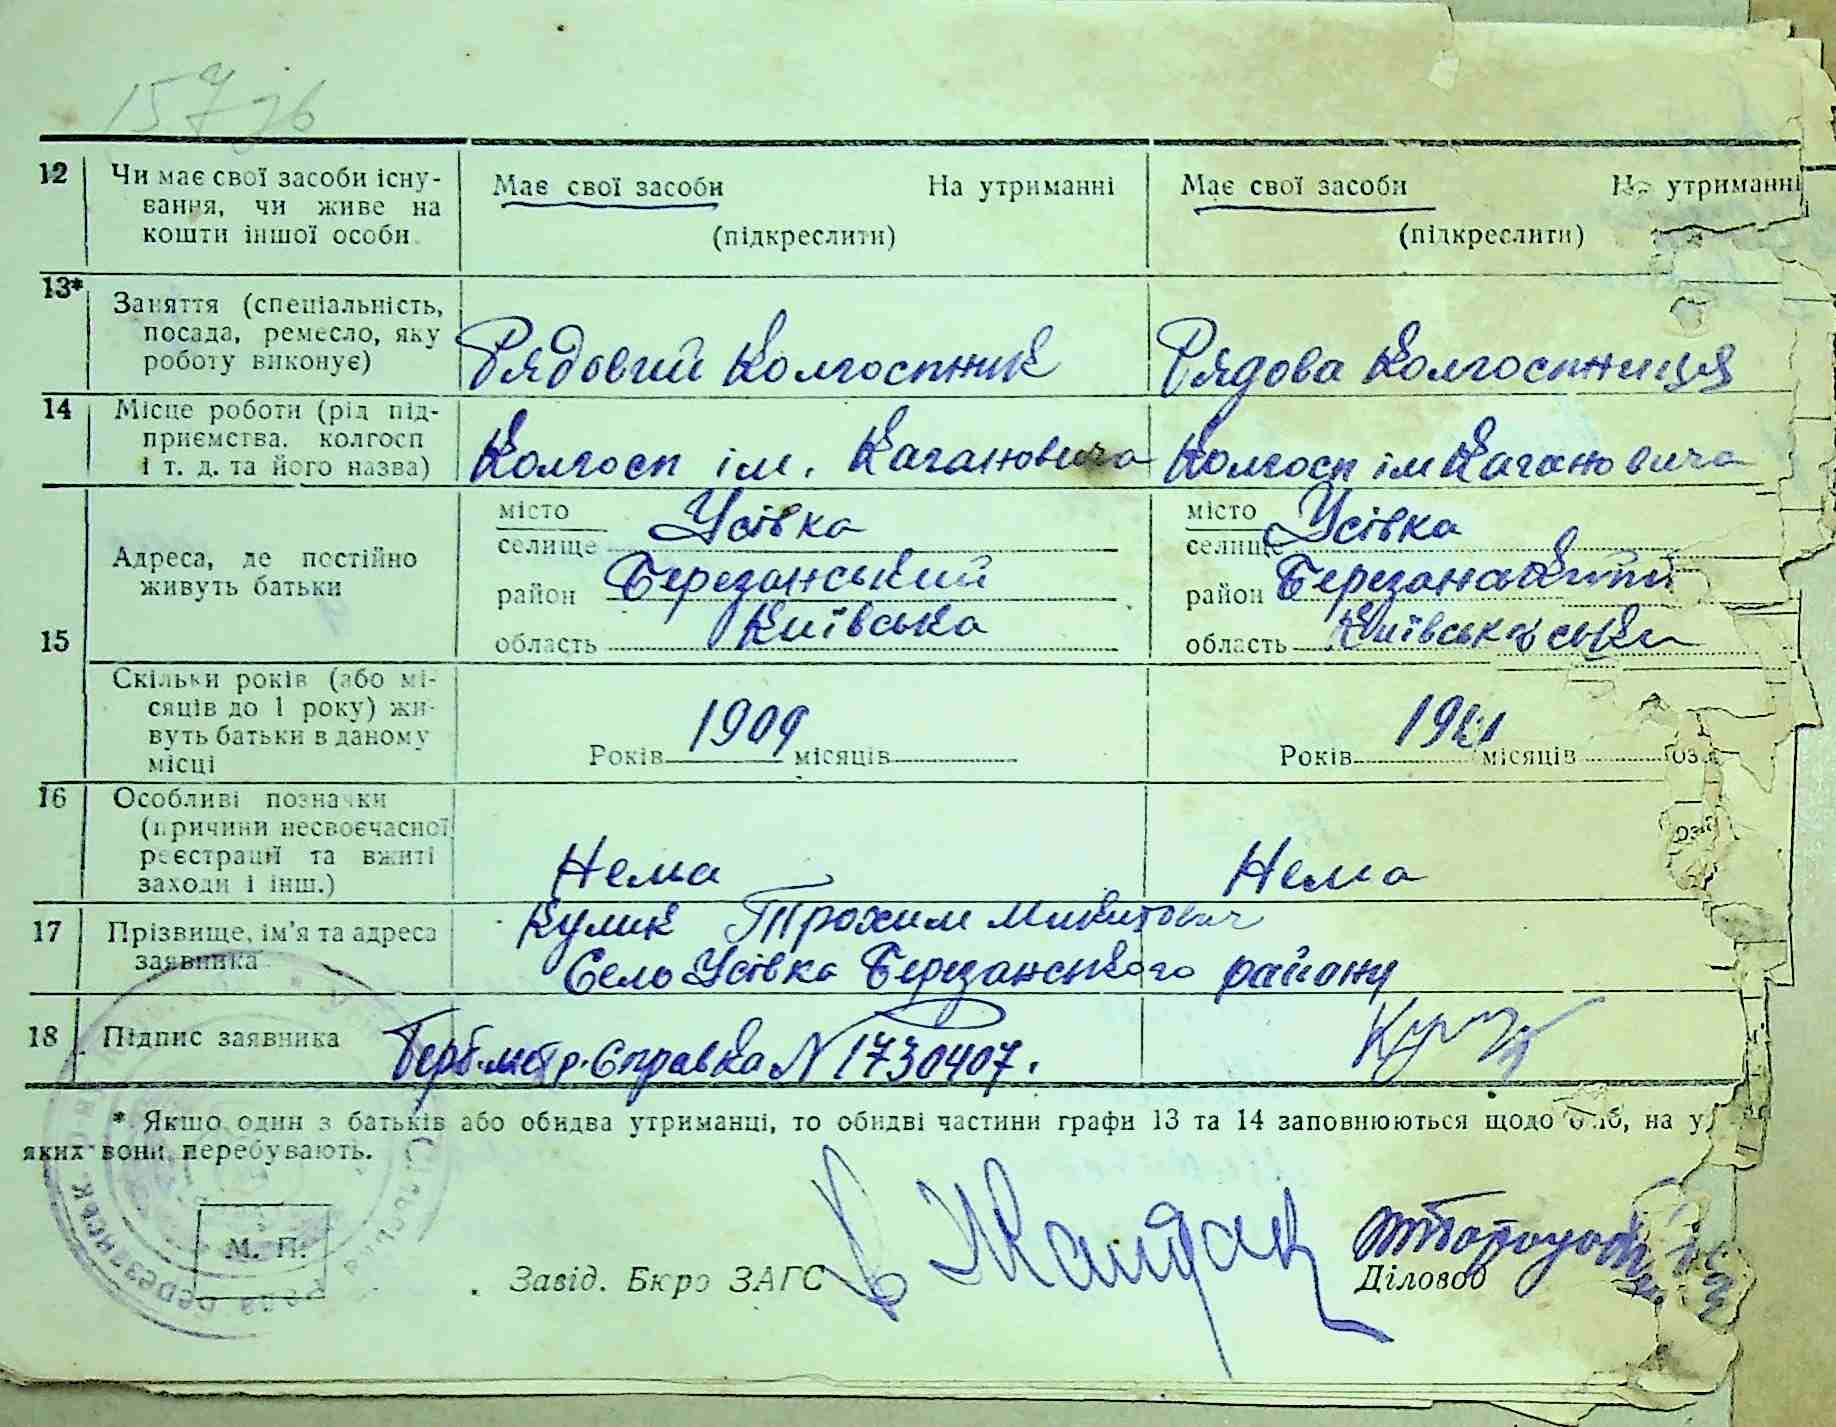 12 Чи має свої засоби існу-
вання, чи живе на
кошти іншої особи
Має свої засоби На утриманні
(підкреслити)
Має свої засоби На утриманні
(підкреслити)
13* Заняття (спеціальність,
посада, ремесло, яку
роботу виконує)
Рядовий Колгоспник
Рядова Колгоспниця
14 Місце роботи (рід під-
приємства. колгосп
і т. д. та його назва)
Колгосп ім. Кагановича
Колгосп ім Кагановича
15 Адреса, де постійно
живуть батьки
місто
селище Усівка
район Березанський
область Київська
місто
селище Усівка
район
область
Скільки років (або мі-
сяців до 1 року) жи-
вуть батьки в даному
місці
Років 1909 місяців
Років місяців
16 Особливі позначки
(причини несвоєчасної
реєстрації та вжиті
заходи і інш.)
Нема
Нема
17 Прізвище, ім'я та адреса
заявника
Кулик Трохим Микитович
Село Усівка Березанського району
18 Підпис заявника
Справка N 1730407.
* Якщо один з батьків або обидва утриманці, то обидві частини графи 13 та 14 заповнюються щодо осіб, на у
яких вони перебувають.
М. П.
Завід. Бюро ЗАГС
Діловод